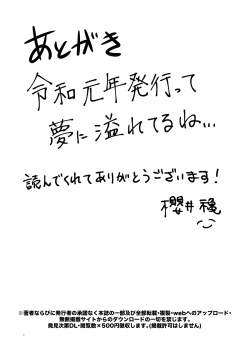 あとがき
令和元年発行って
夢に溢れてるね…
読んでくれてありがとうございます!
櫻井
※著者ならびに発行者の承諾なく本誌の一部及び全部転載・複製・webへのアップロード・
無断掲載サイトからのダウンロードの一切を禁じます。
発見次第DL・閲覧数×500円徴収します。(掲載許可はしません)